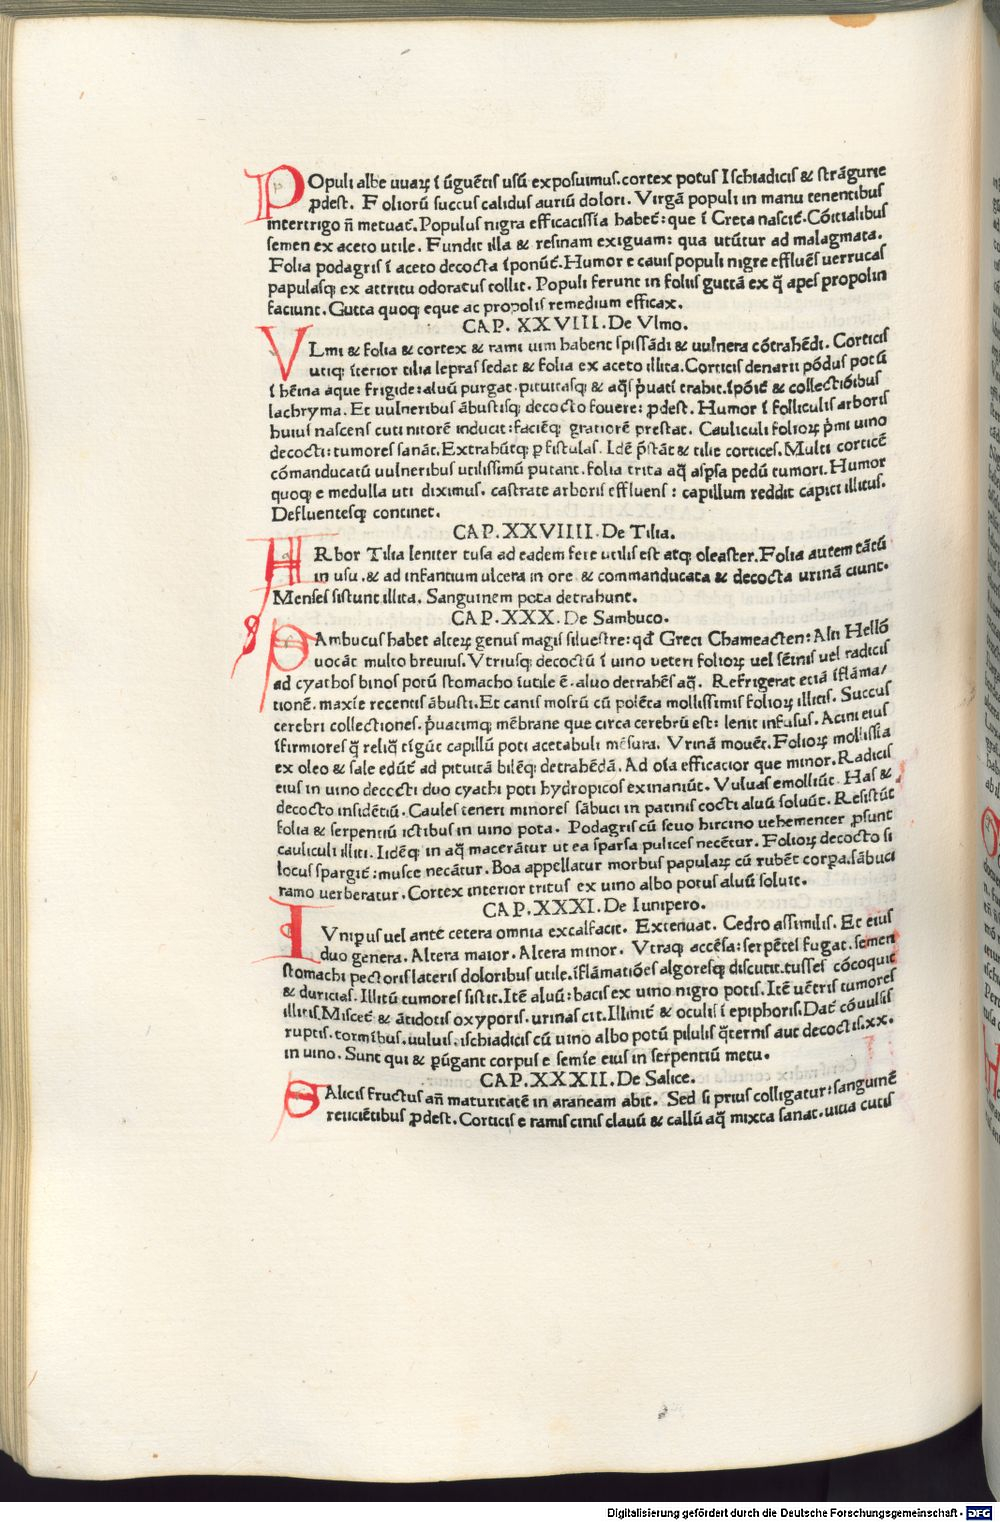 POpuli albe uuaꝝ ĩ ũguẽtis usũ exposuimus.cortex potus Ischiadicis & strãgurie
ꝓdest. Foliorũ succus calidus auriũ dolori. Virgã populi in manu tenentibus
intertrigo ñ metuat̃. Populus nigra efficacissĩa habet̃: que ĩ Creta nascit̃. Cõitialibus
semen ex aceto utile. Fundit illa & resinam exiguam: qua utũtur ad malagmata.
Folia podagris ĩ aceto decocta ĩponũt̃. Humor e cauis populi nigre effluẽs uerrucas
papulasqꝫ ex attritu odoratus tollit. Populi ferunt in foliis guttã ex q̃ apes propolin
faciunt. Gutta quoqꝫ eque ac propolis remedium efficax.
CAP. XXVIII. De Vlmo.
VLmi & folia & cortex & rami uim habent spissãdi & uulnera cõtrahẽdi. Corticis
utiqꝫ ĩterior tilia lepras sedat & folia ex aceto illita. Corticis denarii põdus potũ
ĩ hẽina aque frigide: aluũ purgat. pituitasqꝫ & aq̃s p̃uati trahit. ĩpõit̃ & collectiõibus
lachryma. Et uulneribus ãbustisqꝫ decocto fouere: ꝓdest. Humor ĩ folliculis arboris
huius nascens cuti nitorẽ inducit: faciẽqꝫ gratiorẽ prestat. Cauliculi folioꝝ p̃mi uino
decocti: tumores sanãt. Extrahũtqꝫ ꝑ fistulas. Idẽ p̃stãt & tilie cortices. Multi corticẽ
cõmanducatũ uulneribus utilissimũ putant. folia trita aq̃ asp̃sa pedũ tumori. Humor
quoqꝫ e medulla uti diximus. castrate arboris effluens: capillum reddit capiti illitus.
Defluentesqꝫ continet.
CAP. XXVIIII. De Tilia.
ARbor Tilia leniter tusa ad eadem fere utilis est atqꝫ oleaster. Folia autem tãtũ
in usu. & ad infantium ulcera in ore & commanducata & decocta urinã ciunt.
Menses sistunt illita. Sanguinem pota detrahunt.
CAP. XXX. De Sambuco.
SAmbucus habet alteꝝ genus magis siluestre: qd̃ Greci Chameacten: Alii Hellõ
uocãt multo breuius. Vtriusqꝫ decoctũ ĩ uino ueteri folioꝝ uel sẽinis uel radicis
ad cyathos binos potũ stomacho ĩutile ẽ. aluo detrahẽs aq̃. Refrigerat etiã ĩflãma/
tionẽ. maxĩe recentis ãbusti. Et canis mosrũ cũ polẽta mollissimis folioꝝ illitis. Succus
cerebri collectiones. p̃uatimqꝫ mẽbrane que circa cerebrũ est: lenit infusus. Acini eius
ĩfirmiores q̃ reliq̃ tĩgũt capillũ poti acetabuli mẽsura. Vrinã mouẽt. Folioꝝ mollissĩa
ex oleo & sale edũt̃ ad pituitã bilẽqꝫ detrahẽdã. Ad oĩa efficacior que minor. Radicis
eius in uino decocti duo cyathi poti hydropicos exinaniũt. Vuluas emolliũt. Has &
decocto insidẽtiũ. Caules teneri minores sãbuci in patinis cocti aluũ soluũt. Resistũt
folia & serpentiũ ictibus in uino pota. Podagris cũ seuo hircino uehementer ꝓsunt
cauliculi illiti. Iidẽqꝫ in aq̃ macerãtur ut ea sparsa pulices necẽtur. Folioꝝ decocto si
locus spargit̃: musce necãtur. Boa appellatur morbus papulaꝝ cũ rubẽt corꝑa. sãbuci
ramo uerberatur. Cortex interior tritus ex uino albo potus aluũ soluit.
CAP. XXXI. De Iunipero.
IVniꝑus uel ante cetera omnia excalfacit. Extenuat. Cedro assimilis. Et eius
duo genera. Altera maior. Altera minor. Vtraqꝫ accẽsa: serpẽtes fugat. semen
stomachi pectoris lateris doloribus utile. ĩflãmatiões algoresqꝫ discutit. tusses cõcoquit
& duricias. Illitũ tumores sistit. Itẽ aluũ: bacis ex uino nigro potis. Itẽ uẽtris tumores
illitis. Miscet̃ & ãtidotis oxyporis. urinas cit. Illinit̃ & oculis ĩ epiphoris. Dat̃ cõuulsis
ruptis. torminbus. uuluis. ischiadicis cũ uino albo potũ pilulis q̃ternis aut decoctis. xx.
in uino. Sunt qui & ꝑũgant corpus e semĩe eius in serpentiũ metu.
CAP. XXXII. De Salice.
SAlicis fructus añ maturitatẽ in araneam abit. Sed si prius colligatur: sanguinẽ
reiiciẽtibus ꝓdest. Corticis e ramis cinis clauũ & callũ aq̃ mixta sanat. uitia cutis
Digitalisierung gefördert durch die Deutsche Forschungsgemeinschaft - DFG